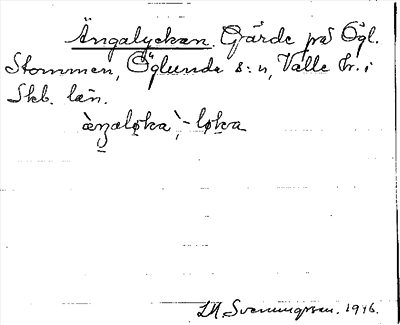 Ängalyckan. Gärde på Ögl.
Stommen, Öglunda s:n, Valle hr. i
Skb. län.
àŋaløka, -løka
D.A. Svenungsson. 1916.